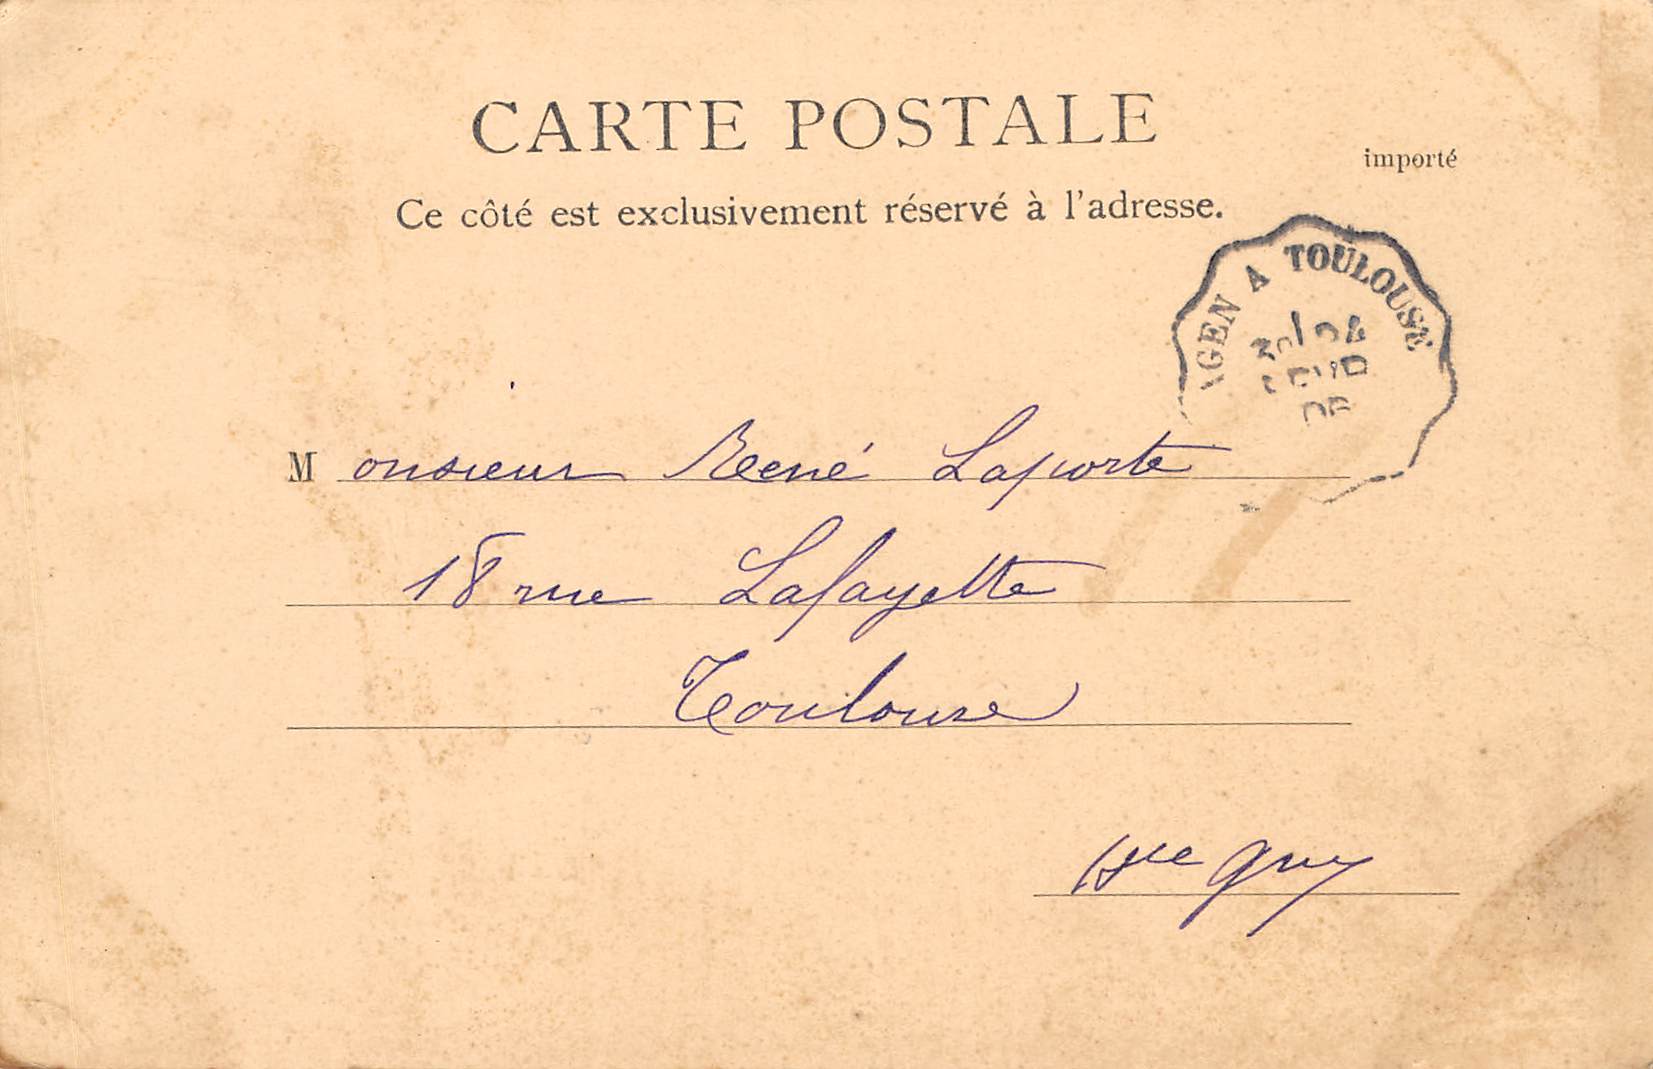 CARTE POSTALE
importé
Ce côté est exclusivement réservé à l'adresse.
AGEN A TOULOUSE
Monsieur René Laporte
18 rue Lafayette
Toulouse